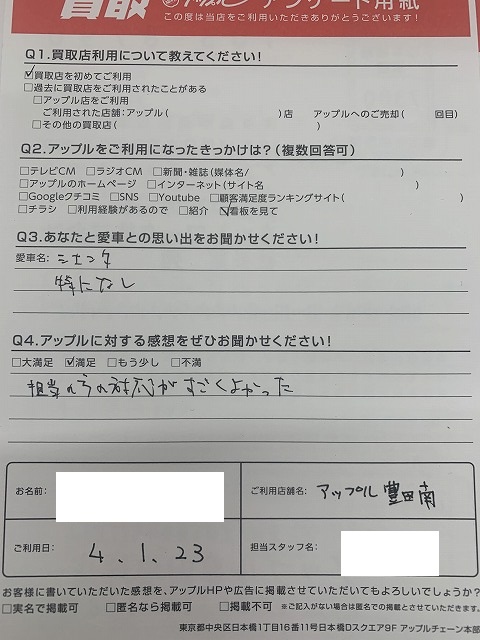 買取 アップル アンケート用紙
この度は当店をご利用いただきありがとうございます!
Q1.買取店利用について教えてください!
☑買取店を初めてご利用
□過去に買取店をご利用されたことがある
□アップル店をご利用
ご利用された店舗:アップル( )店 アップルへのご売却( 回目)
□その他の買取店( )
Q2.アップルをご利用になったきっかけは?(複数回答可)
□テレビCM □ラジオCM □新聞・雑誌(媒体名/ )
□アップルのホームページ □インターネット(サイト名 )
□Googleクチコミ □SNS □Youtube □顧客満足度ランキングサイト( )
□チラシ □利用経験があるので □紹介 ☑看板を見て
Q3.あなたと愛車との思い出をお聞かせください!
愛車名: シエンタ
特になし
Q4.アップルに対する感想をぜひお聞かせください!
□大満足 ☑満足 □もう少し □不満
担当の方の対応がすごくよかった
お名前:
ご利用店舗名: アップル豊田南
ご利用日: 4.1.23
担当スタッフ名:
お客様に書いていただいた感想を、アップルHPや広告に掲載させていただいてもよろしいでしょうか?
□実名で掲載可 □匿名なら掲載可 □掲載不可 ※ご記入がない場合は匿名での掲載とさせていただきます。
東京都中央区日本橋1丁目16番11号日本橋Dスクエア9F アップルチェーン本部